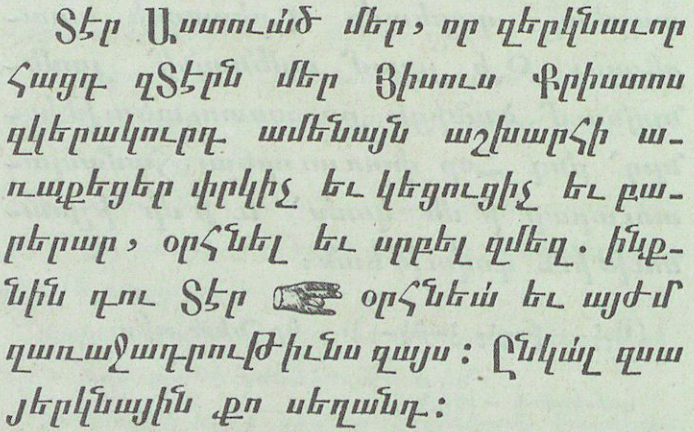 Տէր Աստուած մեր, որ զերկնաւոր
Հացդ զՏէրն մեր Յիսուս Քրիստոս
զկերակուրդ ամենայն աշխարհի ա-
ռաքեցեր փրկիչ եւ կեցուցիչ եւ բա-
րերար, օրհնել եւ սրբել զմեզ. ինք-
նին դու Տէր օրհնեա՛ եւ այժմ
զառաջադրութիւնս զայս: Ընկալ զսա
յերկնային քո սեղանդ: